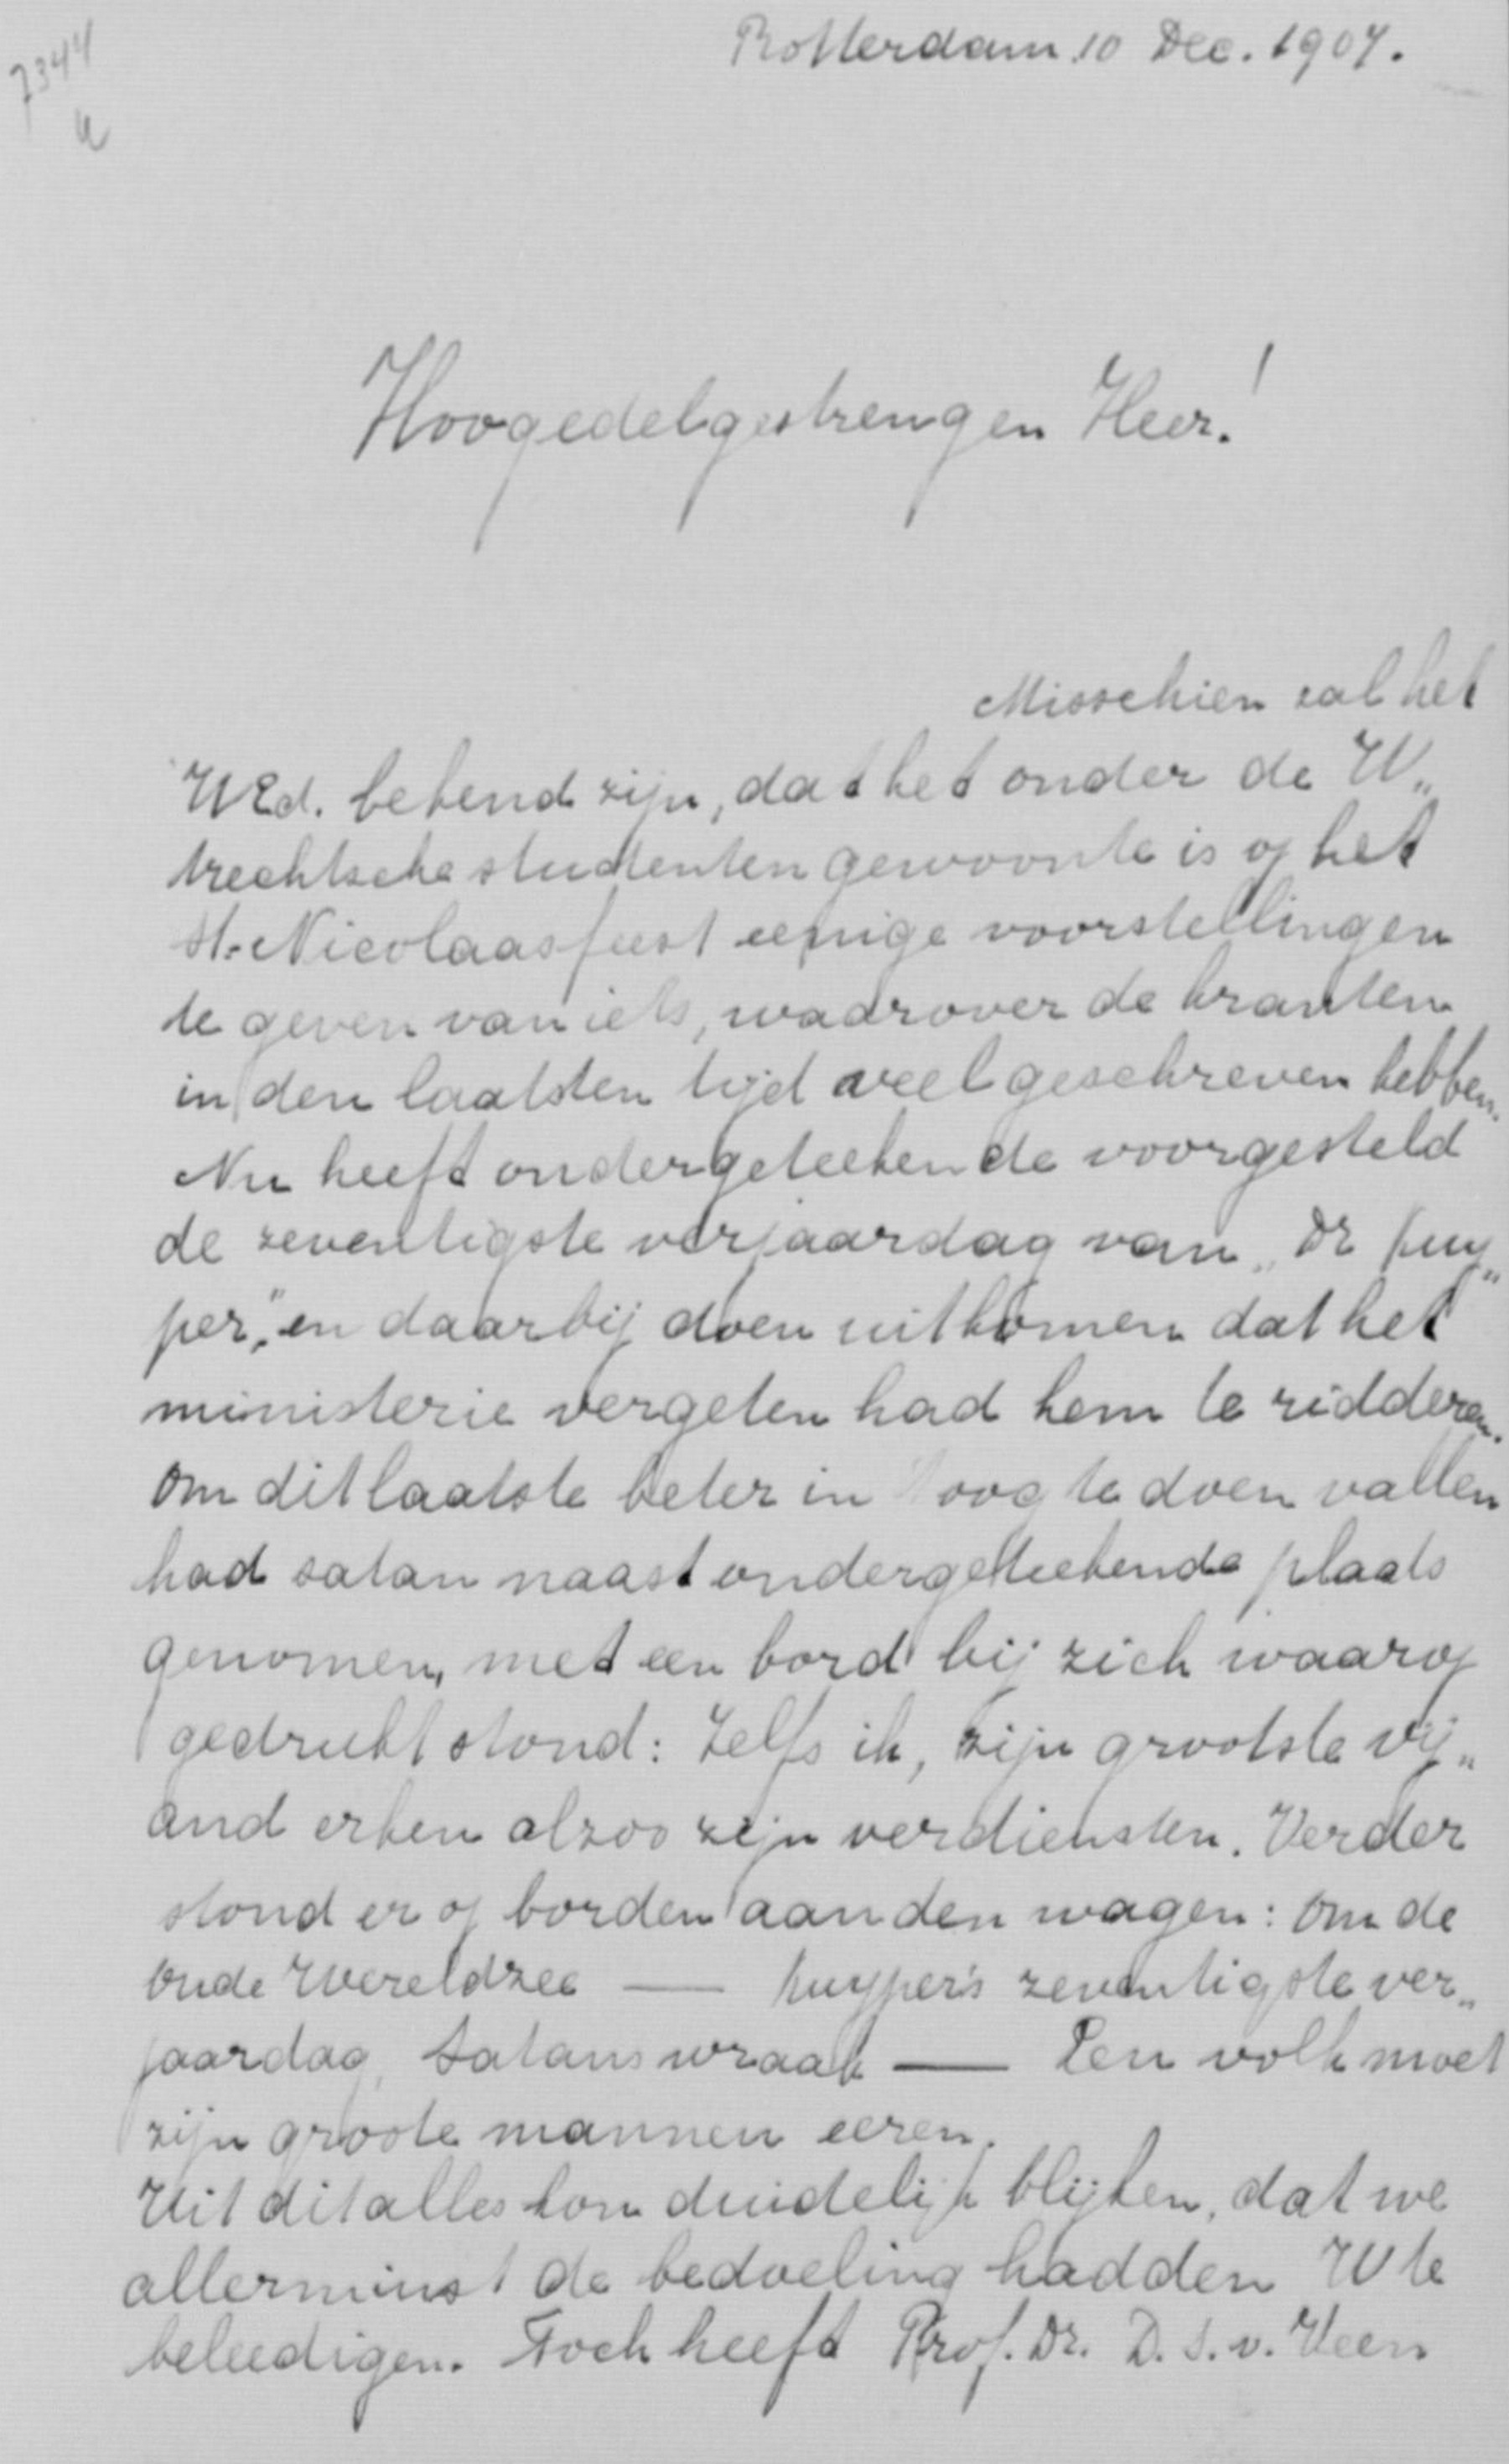 7344
a
Rotterdam 10 Dec. 1907.
Hoogedelgestrengen Heer!
Misschien zal het
UEd. bekend zijn, dat het onder de U„
trechtsche studenten gewoonte is op het
St. Nicolaasfeest eenige voorstellingen
te geven van iets, waarover de kranten
in den laatsten tijd veel geschreven hebben.
Nu heeft ondergeteekende voorgesteld
de zeventigste verjaardag van „Dr Kuy„
per,” en daarbij doen uitkomen dat het
ministerie vergeten had hem te ridderen.
Om dit laatste beter in 't oog te doen vallen
had satan naast ondergeteekende plaats
genomen, met een bord bij zich waarop
gedrukt stond: Zelfs ik, zijn grootste vij„
and erken alzoo zijn verdiensten. Verder
stond er op borden aan den wagen: Om de
oude Wereldzee — Kuyper's zeventigste ver„
jaardag, Satans wraak — Een volk moet
zijn groote mannen eeren.
Uit dit alles kon duidelijk blijken, dat we
allerminst de bedoeling hadden U te
beleedigen. Toch heeft Prof. Dr. D. S. v. Veen